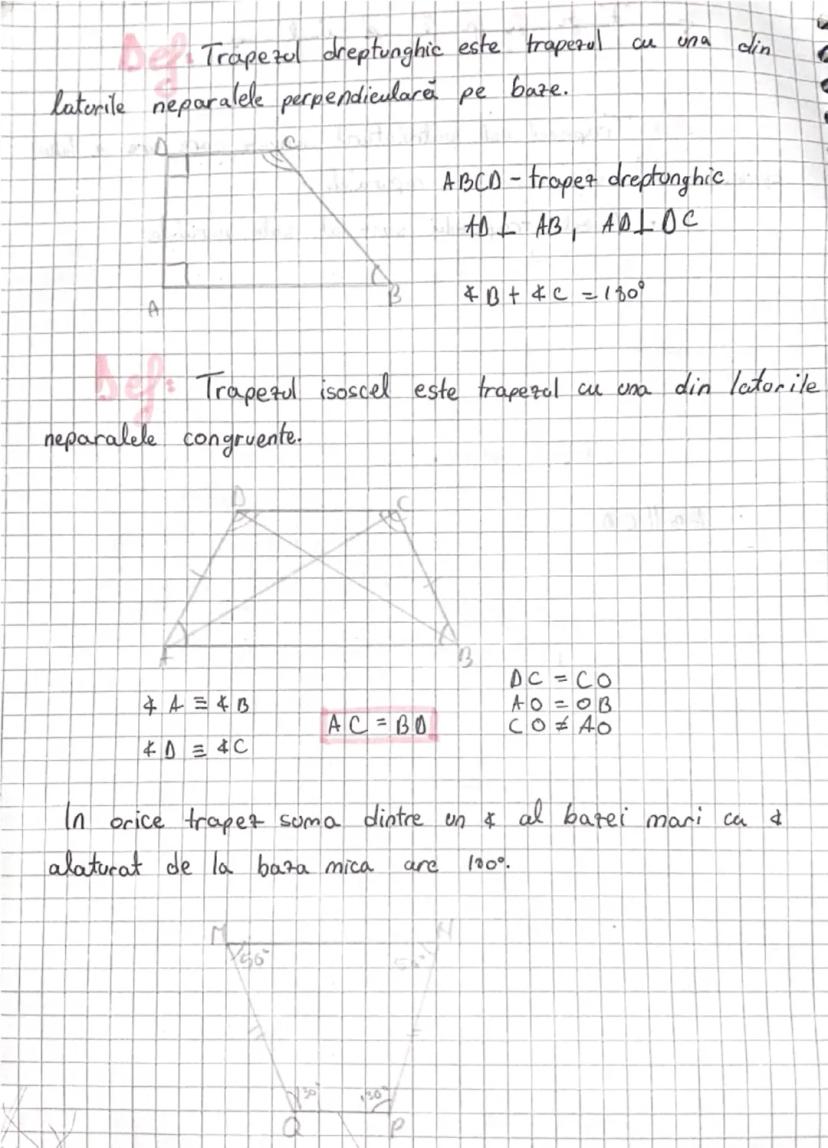 Def: Trapezul dreptunghic este trapezul cu una din
laturile neparalele perpendiculară pe baze.
D C
ABCD - trapez dreptunghic
AD ⊥ AB, AD ⊥ DC
∢B + ∢C = 180°
A B
Def: Trapezul isoscel este trapezul cu una din laturile
neparalele congruente.
D C
A B
DC = CO
∢A ≡ ∢B
AO = OB
AC = BD
CO ≠ AO
∢D ≡ ∢C
In orice trapez suma dintre un ∢ al bazei mari cu ∢
alaturat de la baza mica are 180°.
M N
50° 50°
130° 130°
Q P